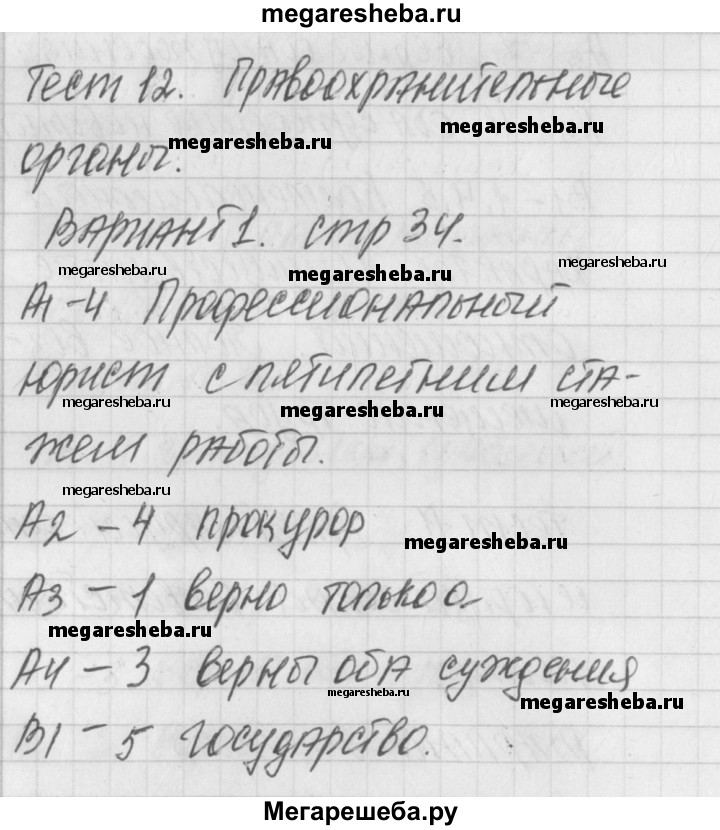 megaresheba.ru
Тест 12. Правоохранительные
megaresheba.ru
megaresheba.ru
органы.
Вариант 1. стр 34.
megaresheba.ru
megaresheba.ru
megaresheba.ru
А1-4 Профессиональный
юрист с пятилетним ста-
megaresheba.ru
megaresheba.ru
megaresheba.ru
жем работы.
megaresheba.ru
А2 - 4 прокурор
megaresheba.ru
А3 - 1 верно только а
megaresheba.ru
А4 - 3 верны оба суждения
megaresheba.ru
megaresheba.ru
В1 - 5 государство.
Мегарешеба.ру